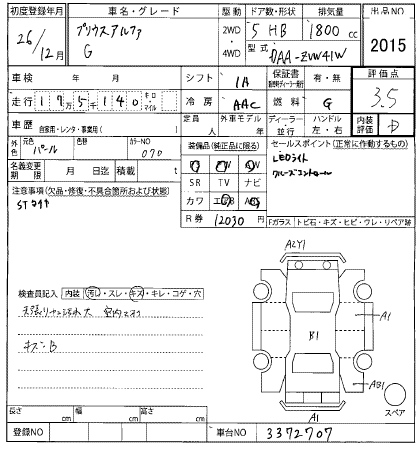 初度登録年月 車名・グレード 駆動 ドア数・形状 排気量 出品NO
26/12月 プリウスアルファ G 2WD・4WD 5 HB 1800cc 2015
型式 DAA-ZVW41W
車検 年 月 シフト IA 保証書 有・無 評価点
走行 175140 キロ・マイル 冷房 AAC 燃料 G 3.5
車歴 自家用・レンタ・事業用( ) 定員 人 外車モデル 年 ディーラー・並行 ハンドル 左・右 内装評価 D
外色 元色 パール 色替 カラーNO 070 装備品(純正品に限る) セールスポイント(正常に作動するもの)
名義変更期限 月 日迄 積載 t PS PW AW LEDライト
注意事項(欠品・修復・不具合箇所および状態) SR TV ナビ クルーズコントロール
STマイナ カワ エアB ABS
R券 12030円 Fガラス トビ石・キズ・ヒビ・ワレ・リペア跡
検査員記入 内装 汚れ・スレ・キズ・キレ・コゲ・穴
キズB
A2Y1
A1
B1
A1
スペア
長さ cm 幅 cm 高さ cm
登録NO 車台NO 3372707